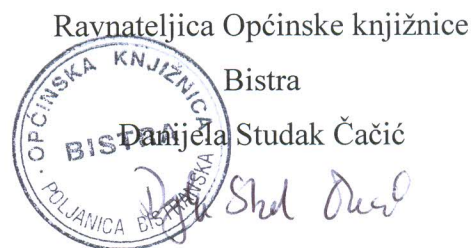 Ravnateljica Općinske knjižnice
Bistra
Danijela Studak Čačić
OPĆINSKA KNJIŽNICA
BISTRA
POLJANICA BISTRANSKA